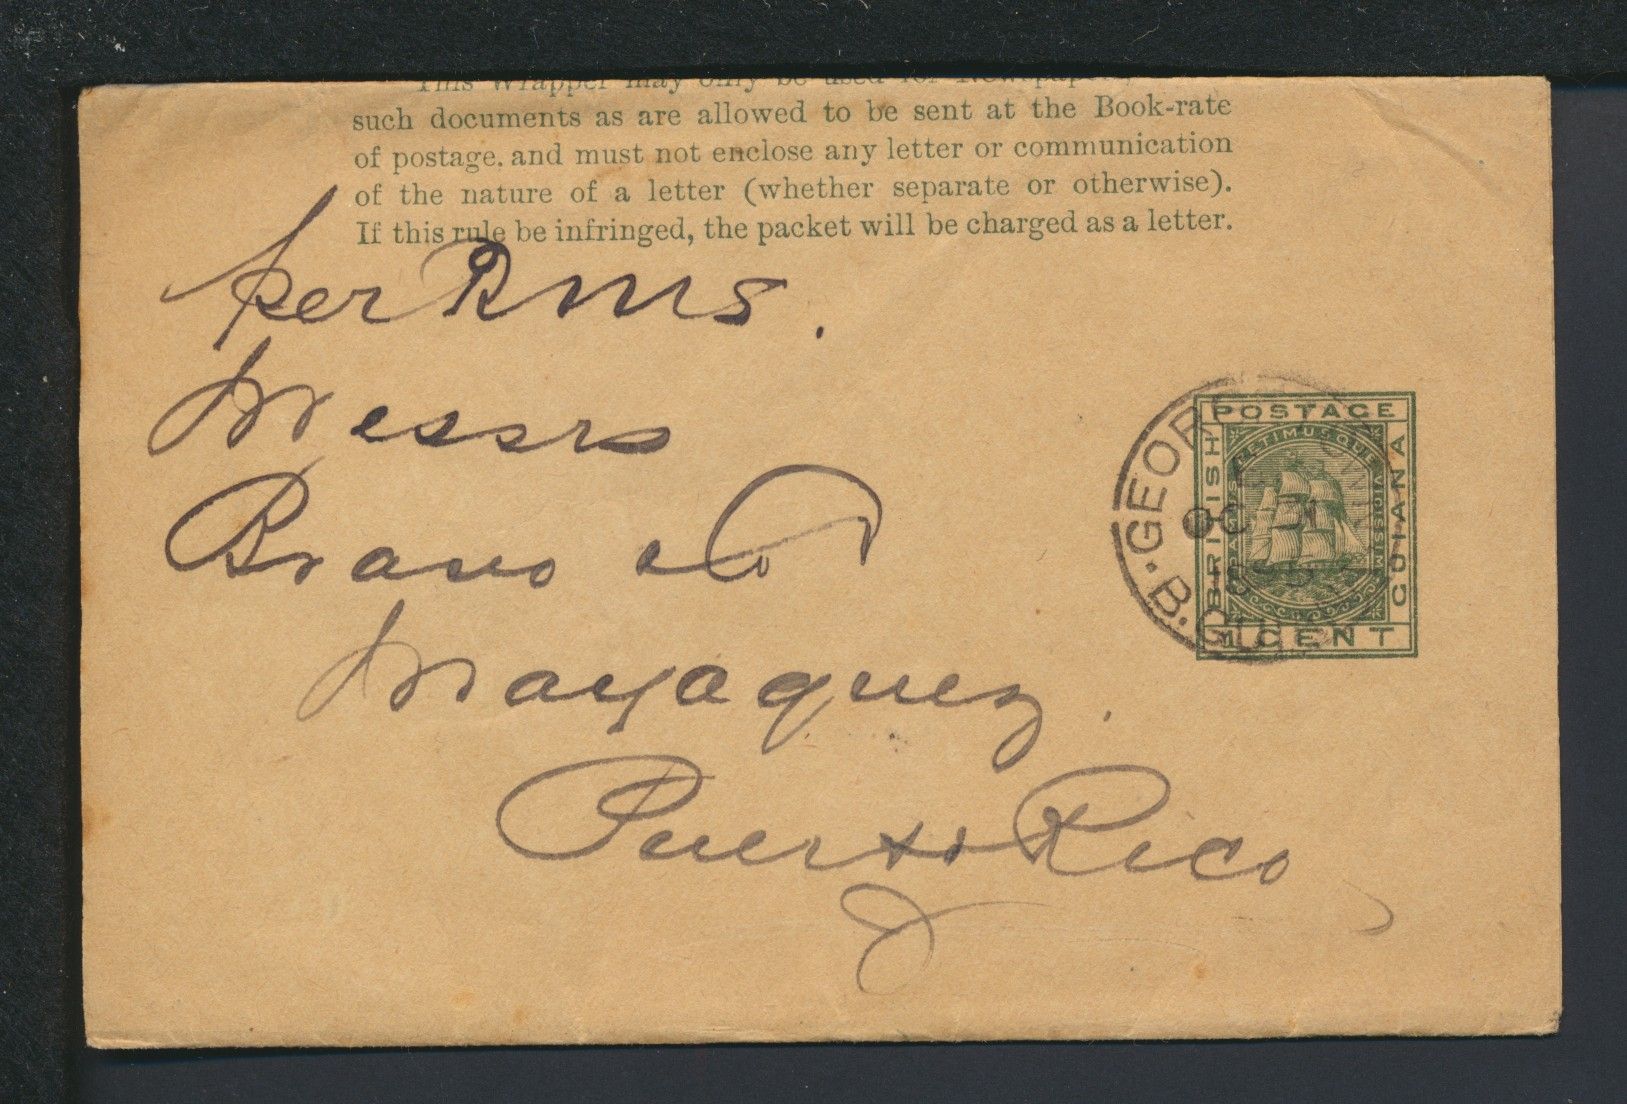 This Wrapper may only be used for Newspapers,
such documents as are allowed to be sent at the Book-rate
of postage. and must not enclose any letter or communication
of the nature of a letter (whether separate or otherwise).
If this rule be infringed, the packet will be charged as a letter.
per RMS.
Messrs
Bravo & Co
Mayaguez.
Puerto Rico
POSTAGE
BRITISH
GUIANA
DAMUS PETIMUSQUE VICISSIM
1 CENT
GEORGETOWN
OC
B. GUI